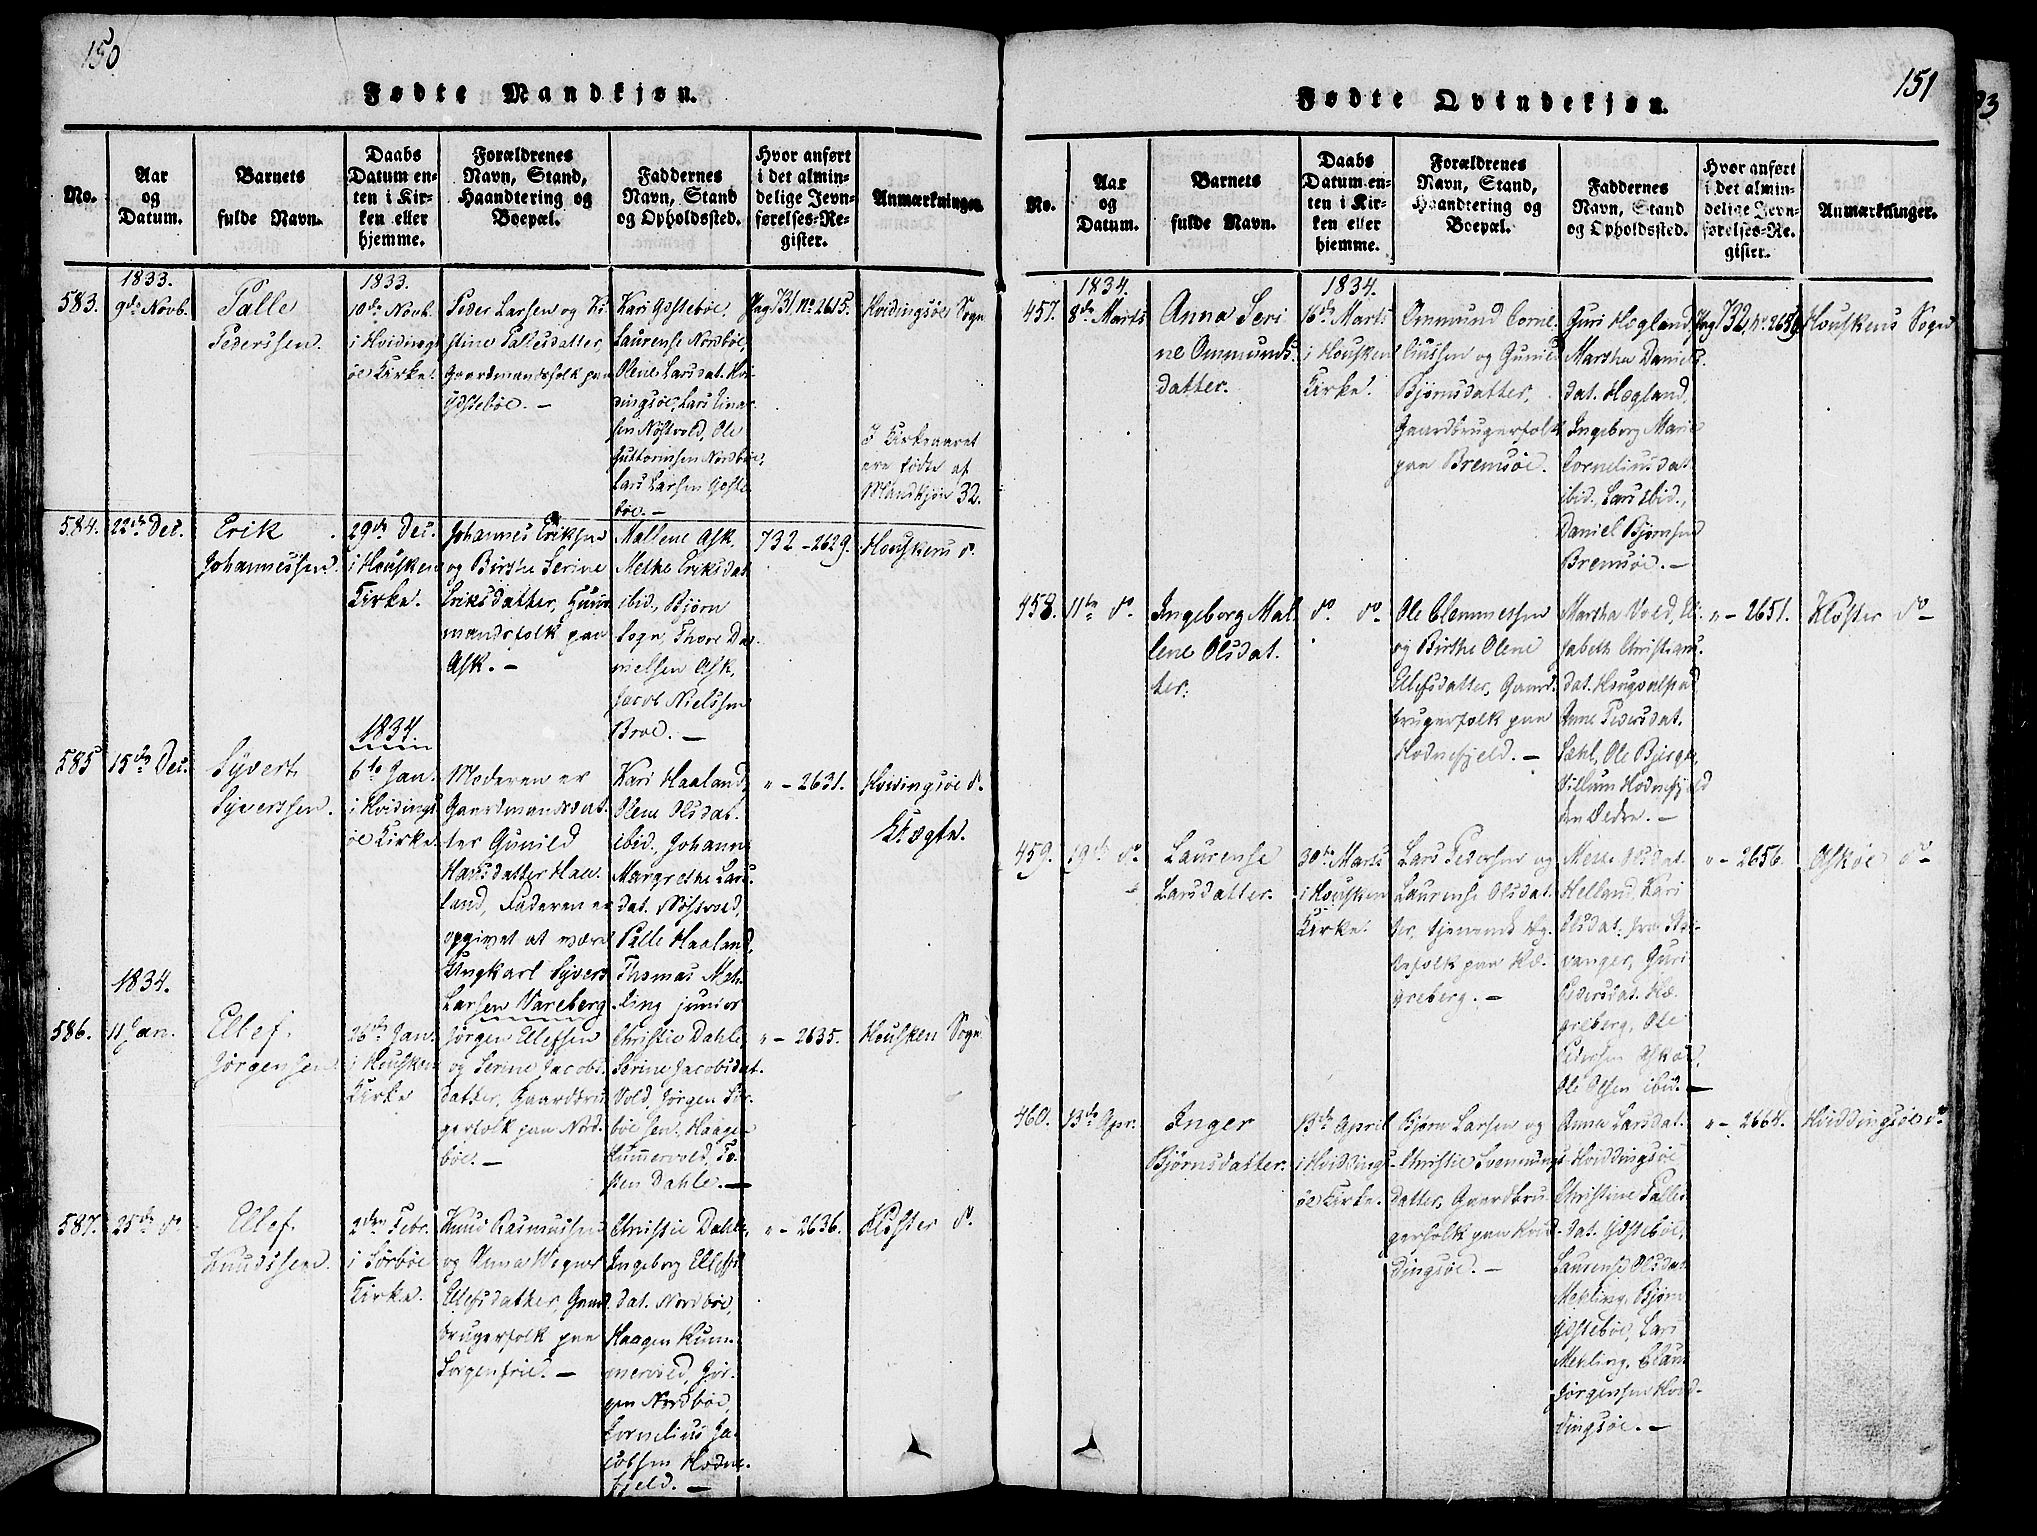 150
Fødte Mandkjøn.
No.
Aar
og
Datum.
Barnets
fulde Navn.
Daabs
Datum en-
ten i Kir-
ken eller
hjemme.
Forældrenes
Navn, Stand,
Haandtering og
Boepæl.
Faddernes
Navn, Stand
og Opholdssted.
Hvor anført
i det almin-
delige Jevn-
førelses-Re-
gister.
Anmærkninger.
1833.
583.
9de Novb.
Palle
Pederssen.
1833.
10de Novb.
i Hvidings
øe Kirke.
Peder Larsen og Ki
stine Pallesdatter,
Gaardmandsfolk paa
Ydstebøe. -
Kari Ydstebøe,
Laurense Nordbøe,
Olene Larsdat. Hvi-
dingsøe, Lars Einar
sen Nøstvold, Ole
Guttormsen Nordbøe,
Lars Larsen Ydste-
bøe. -
Pag 731 No 2615.
Hvidingsøe Sogn
I Kirkeaaret
ere fødte af
Mandkjøn 32.
584.
22de Dec.
Erik
Johannessen.
29de Dec.
i Houskens
Kirke.
Johannes Eriksen
og Birthe Serine
Eriksdatter, Huus
mandsfolk paa
Ask. -
Mallene Ask,
Methe Eriksdat.
ibid., Bjørn
Sogn, Thore Da-
nielsen Ask,
Jacob Nielssen
Broe. -
732 - 2629.
Houskens do.
585
15de Dec.
Syvert
Syverssen.
1834.
6te Jan.
i Hvidings
øe Kirke.
Moderen er
Gaardmandsdat
ter Gunild
Hansdatter Haa-
land, Faderen er
opgivet at være
Ungkarl Syvert
Larsen Vareberg
Kari Haaland,
Olene Olsdat.
ibid., Johanne
Margrethe Lars-
dat. Nøstvold,
Palle Haaland,
Thomas Meh-
ling junior
" - 2631.
Hvidingsøe do.
Uægte.
1834.
586.
11 Jan.
Ellef
Jørgensen.
26de Jan.
i Housken
Kirke
Jørgen Ellefsen
og Serine Jacobs
datter, Gaardbru
gerfolk paa Nord-
bøe. -
Christie Dahle,
Serine Jacobsdat.
Vold, Jørgen Sør-
bøe sen., Haagen
Kummervold, To-
sten Dahle. -
" - 2635.
Housken Sogn
587.
25de do
Ellef
Knudssen.
2den Febr.
i Sørbøe
Kirke.
Knud Rasmussen
og Anna
Ellefsdatter, Gaard
brugerfolk paa
Sorgenfrie. -
Christie Dahle,
Ingeborg Ellefs
dat. Nordbøe,
Haagen Kum-
mervold, Jør-
gen Nordbøe,
Cornelius Ja-
cobsen Hodne-
fjeld. -
" - 2636.
Kloster do.
151
Fødte Qvindekjøn.
No.
Aar
og
Datum.
Barnets
fulde Navn.
Daabs
Datum en-
ten i Kir-
ken eller
hjemme.
Forældrenes
Navn, Stand,
Haandtering og
Boepæl.
Faddernes
Navn, Stand
og Opholdssted.
Hvor anført
i det almin-
delige Jevn-
førelses-Re-
gister.
Anmærkninger.
1834.
457.
8de Marts
Anna Seri
ne Ommunds-
datter.
1834.
16de Marts
i Housken
Kirke.
Ommund Corne-
liussen og Gunild
Bjørnsdatter,
Gaardbrugerfolk
paa Bremsøe.
Guri Hægland,
Martha Daniels
dat. Hægland,
Ingeborg Marie
Corneliusdat.
ibid., Lars ibid.,
Daniel Bjørnsen
Bremsøe. -
Pag. 732, No
Houskens Sogn
458.
11te do.
Ingeborg Mal
lene Olsdat-
ter.
do. do
Ole Clemmetsen
og Birthe Olene
Ellefsdatter, Gaard-
brugerfolk paa
Hodnefjeld. -
Martha Vold, Eli-
sabeth Christians-
dat.
Anne Pedersdat.
Sæhl, Ole Bjerge,
Villum Hodnefjeld
den Ældre. -
" - 2651.
Kloster do
459.
19de do
Laurense
Larsdatter.
30te Marts
i Housken
Kirke.
Lars Pedersen og
Laurense Olsdat-
ter, tjenende Æg-
tefolk paa Hæ-
greberg. -
Mette Olsdat.
Helland, Kari
Olsdat. fra Sta-
vanger, Guri
Pedersdat. Hæ-
greberg, Ole
Pedersen Askøe,
Ole Olsen ibid. -
" - 2656.
Askøe do
460.
13de Apr.
Inger
Bjørnsdatter.
13de April
i Hviddings-
øe Kirke.
Bjørn Larsen og
Christie Svennungs
datter, Gaardbru-
gerfolk paa Hvid-
dingsøe. -
Anna Larsdat.
Hviddingsøe
Christine Palles-
dat. Ydstebøe,
Laurense Olsdat.
Mehling, Bjørn
Ydstebøe, Lars
Mehling, Claus
Jørgensen Hvid-
dingsøe. -
" - 2664.
Hviddingsøe do